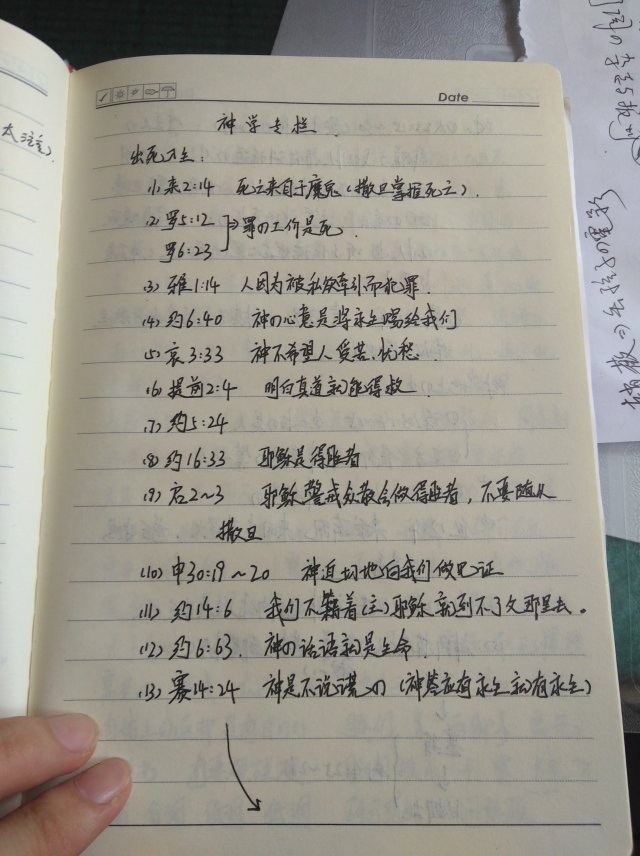 Date
神学专栏
出死入生:
(1) 来2:14 死亡来自于魔鬼(撒旦掌握死亡).
(2) 罗5:12
罗6:23 ⇒罪の工价是死.
(3) 雅1:14 人因为被私欲牵引而犯罪.
(4) 约6:40 神の心意是将永生赐给我们
(5) 哀3:33 神不希望人受苦、忧愁.
(6) 提前2:4 明白真道就能得救.
(7) 约5:24
(8) 约16:33 耶稣是得胜者
(9) 启2~3 耶稣警戒众教会做得胜者,不要随从
撒旦
(10) 申30:19~20 神迫切地向我们做见证
(11) 约14:6 我们不藉着(主)耶稣就到不了父那里去。
(12) 约6:63. 神の话语就是生命.
(13) 赛14:24 神是不说谎の(神答应有永生就有永生)